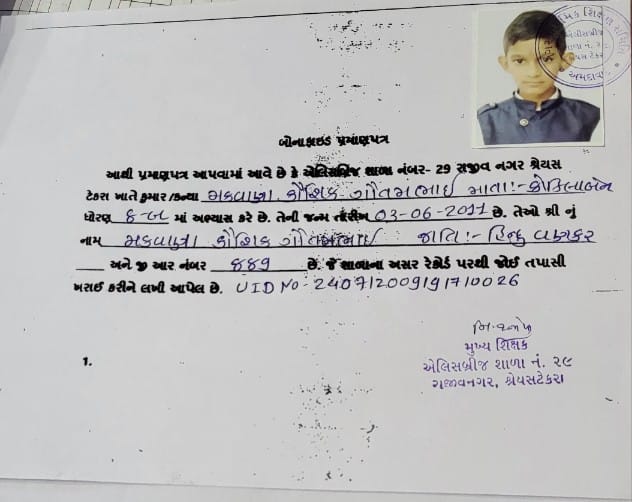 અમદાવાદ
બોનાફાઇડ પ્રમાણપત્ર
આથી પ્રમાણપત્ર આપવામાં આવે છે કે એલિસબ્રિજ શાળા નંબર- 29 રાજીવ નગર શ્રેયસ
ટેકરા ખાતે કુમાર/કન્યા મકવાણા કૌશિક ગૌતમભાઇ માતા:- કોકિલાબેન
ધોરણ ૬-બ માં અભ્યાસ કરે છે. તેની જન્મ તારીખ 03-06-2011 છે. તેઓ શ્રી નું
નામ મકવાણા કૌશિક ગૌતમભાઇ જાતિ:- હિન્દુ વણકર
અને જી આર નંબર ૬૬૧ છે. જે શાળાના અસર રેકોર્ડ પરથી જોઈ તપાસી
ખરાઈ કરીને લખી આપેલ છે. UID No - 240712009191710026
મુખ્ય શિક્ષક
1.
એલિસબ્રીજ શાળા નં. ૨૯
રાજીવનગર, શ્રેયસટેકરા